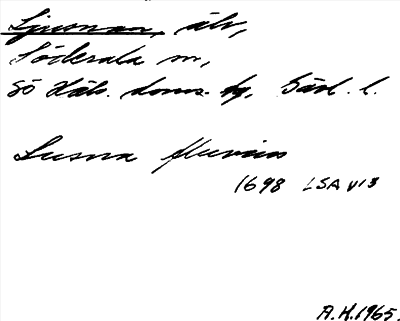 Ljusnan, älv,
Söderala sn,
Sö Häls. doms. hg, Gävl. l.
Lusna fluvius
1698 LSA V13
A.H. 1965.